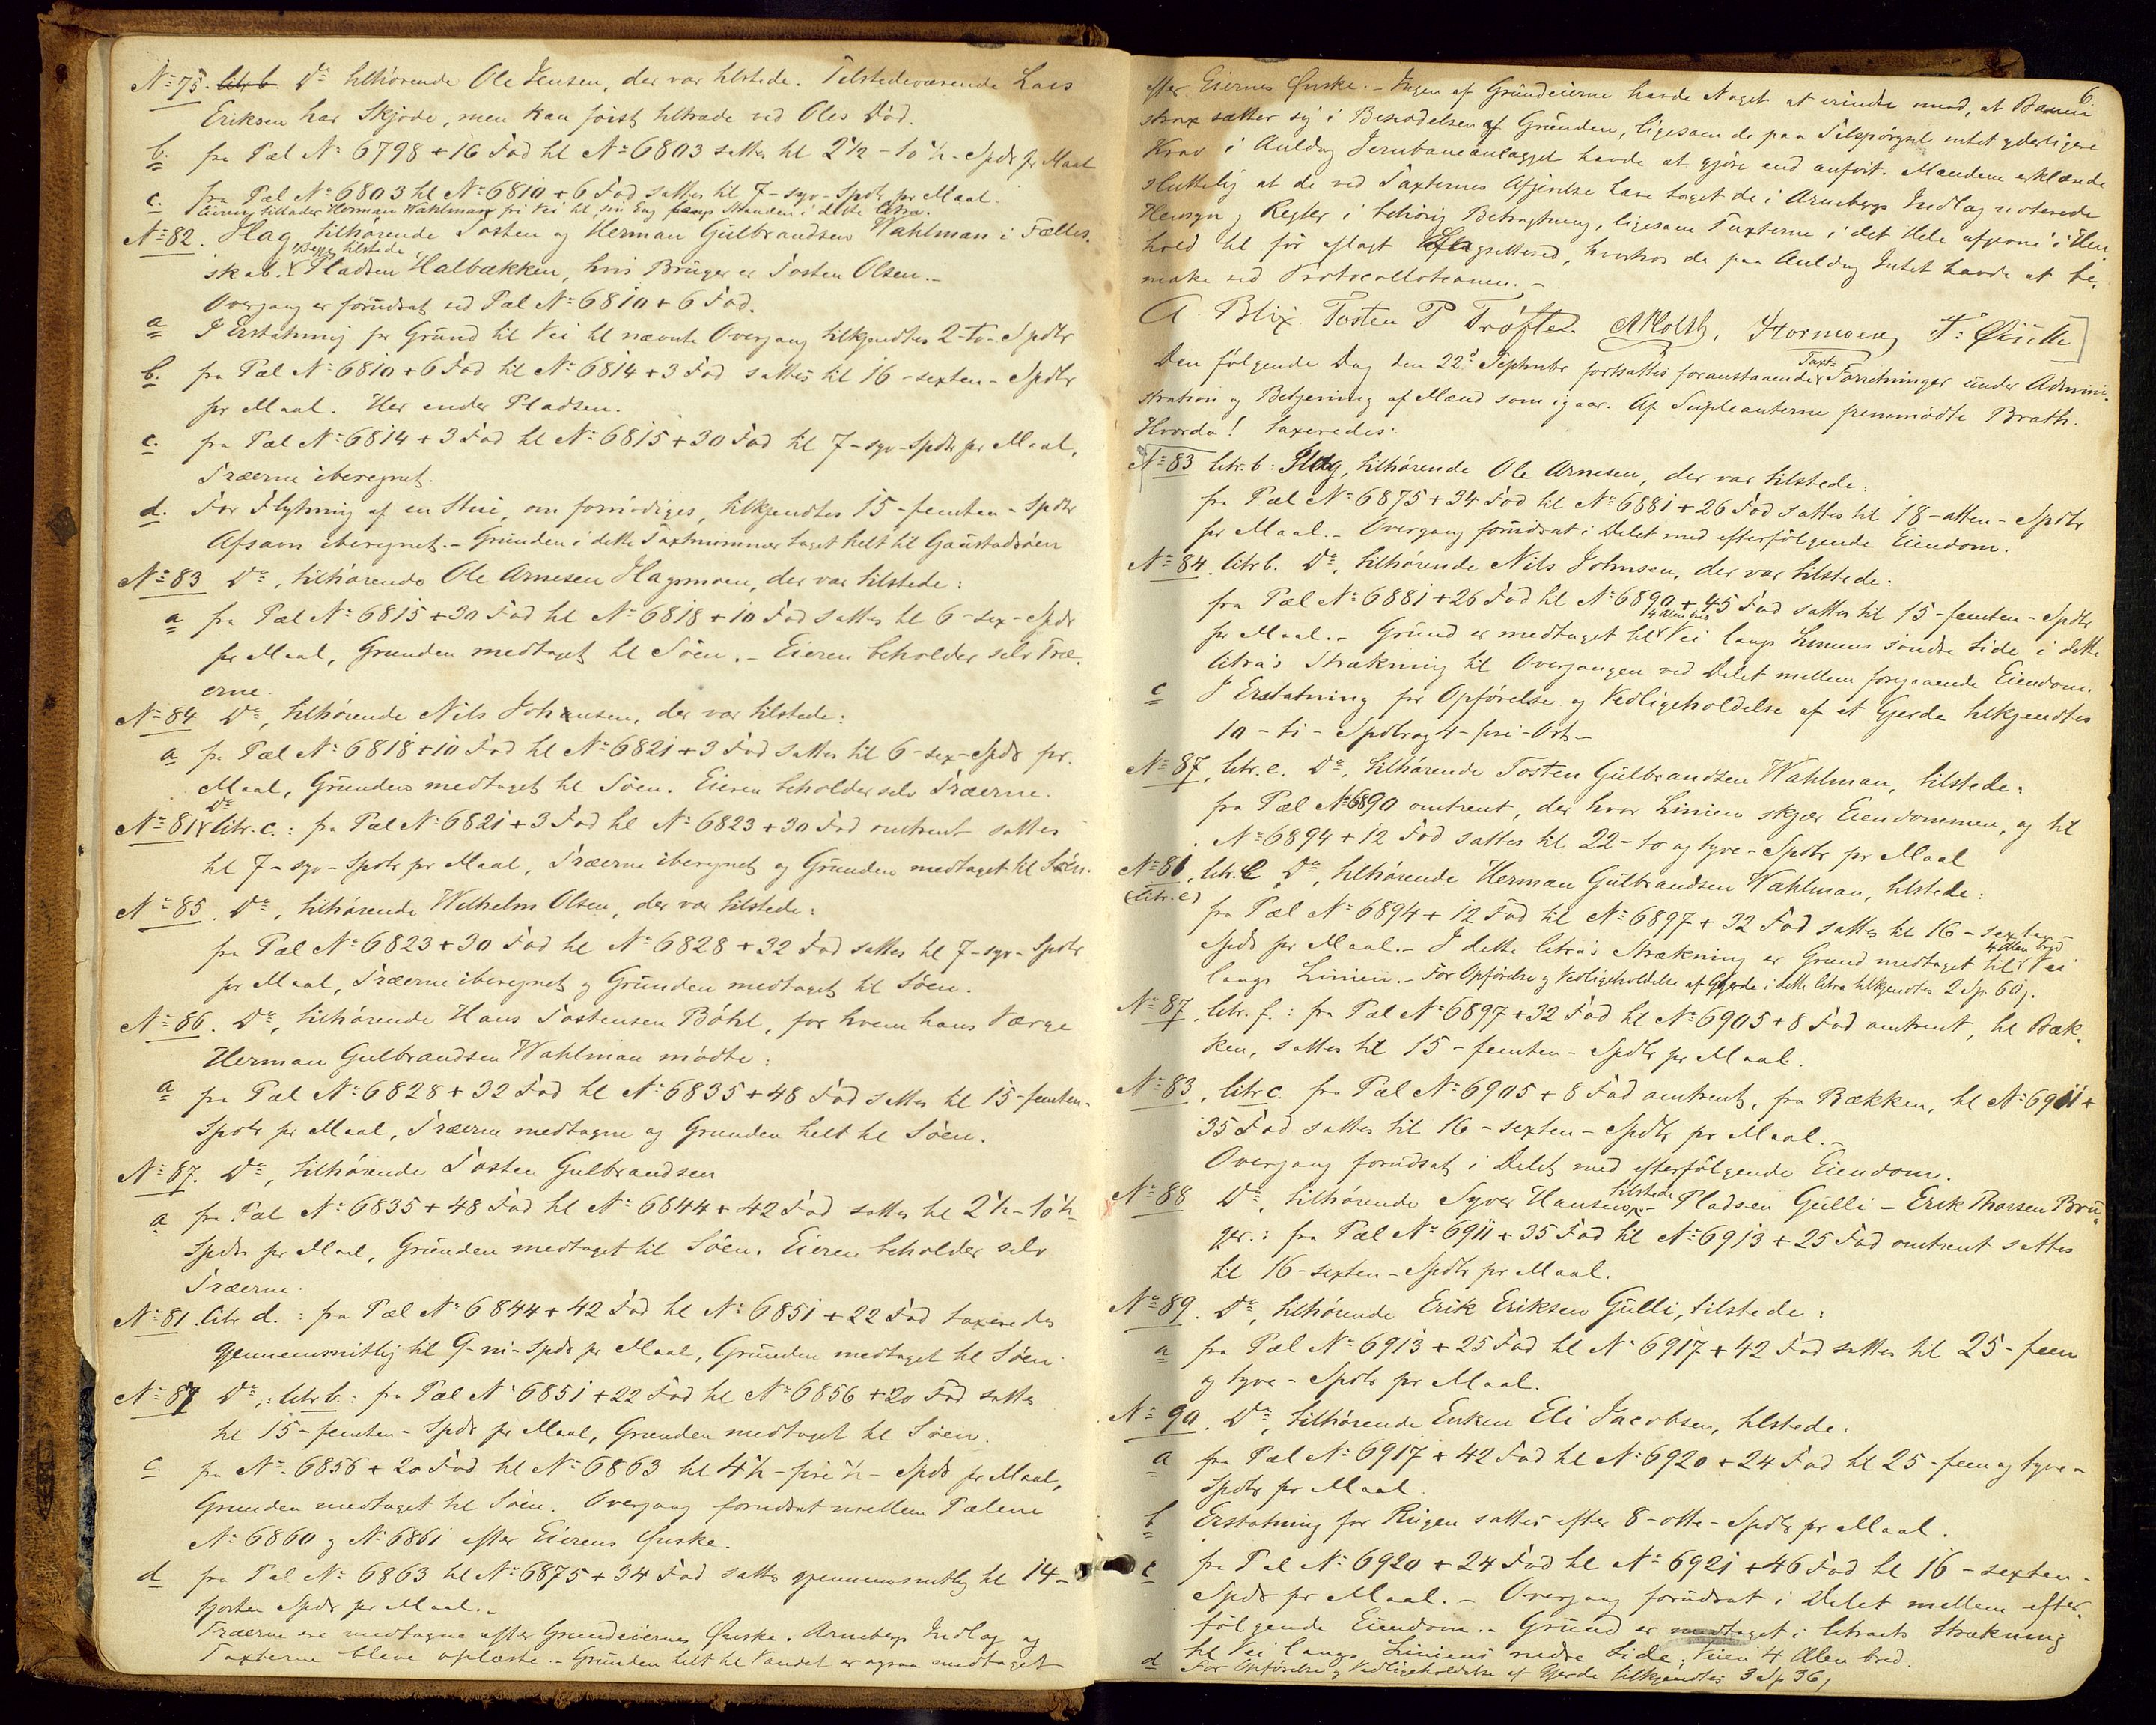 No 75. litr b. Do tilhørende Ole Jensen, der var tilstede. Tilstedeværende Lars
Eriksen har Skjøde, men kan først tiltræde ved Oles Død.
b. fra Pæl No 6798 + 16 Fod til No 6803 sattes til 2½ - to ½ - Spdlr pr Maal
c. fra Pæl No 6803 til No 6810 + 6 Fod sattes til 7 - syv - Spdlr pr Maal.
Eieren tillader Herman Wahlman fri Vei til sin Eng langs Stranden i dette litra.
No 82. Hag tilhørende Tosten og Herman Gulbrandsen Wahlman i Fælles-
begge tilstede
skab. Pladsen Halbækken, hvis Bruger er Tosten Olsen. -
Overgang er forudsat ved Pæl No 6810 + 6 Fod.
a I Erstatning for Grund til Vei til nævnte Overgang tilkjendtes 2 - to - Spdlr
b. fra Pæl No 6810 + 6 Fod til No 6814 + 3 Fod sattes til 16 - sexten - Spdlr
pr Maal. Her ender Pladsen.
c. fra Pæl No 6814 + 3 Fod til No 6815 + 30 Fod til 7 - syv - Spdlr pr Maal,
Træerne iberegnet.
d. For Flytning af en Stue, om fornødiges, tilkjendtes 15 - femten - Spdlr
Afsavn iberegnet. - Grunden i dette Taxtnummer taget helt til Gaustadsøen
No 83 Do, tilhørende Ole Arnesen Hagsmoen, der var tilstede:
a fra Pæl No 6815 + 30 Fod til No 6818 + 10 Fod sattes til 6 - sex - Spdlr
pr Maal, Grunden medtaget til Søen. - Eieren beholder selv Træ-
erne.
No 84 Do, tilhørende Nils Johnsen, der var tilstede:
a fra Pæl No 6818 + 10 Fod til No 6821 + 3 Fod sattes til 6 - sex - Spdlr pr.
Maal, Grunden medtaget til Søen. Eieren beholder selv Træerne.
No 81 Do litr. c.: fra Pæl No 6821 + 3 Fod til No 6823 + 30 Fod omtrent sattes
til 7 - syv - Spdlr pr Maal, Træerne iberegnet og Grunden medtaget til Søen.
No 85. Do, tilhørende Wilhelm Olsen, der var tilstede:
fra Pæl No 6823 + 30 Fod til No 6828 + 32 Fod sattes til 7 - syv - Spdlr
pr Maal, Træerne iberegnet og Grunden medtaget til Søen.
No 86. Do, tilhørende Hans Tostensen Bøhl, for hvem hans Værge
Herman Gulbrandsen Wahlman mødte:
a fra Pæl No 6828 + 32 Fod til No 6835 + 48 Fod sattes til 15 - femten -
Spdlr pr Maal, Træerne medtagne og Grunden helt til Søen.
No 87. Do, tilhørende Tosten Gulbrandsen
a fra Pæl No 6835 + 48 Fod til No 6844 + 42 Fod sattes til 2½ - to ½ -
Spdlr pr Maal, Grunden medtaget til Søen. Eieren beholder selv
Træerne.
No 81. litr d.: fra Pæl No 6844 + 42 Fod til No 6851 + 22 Fod taxeredes
gjennemsnitlig til 9 - ni - Spdlr pr Maal, Grunden medtaget til Søen.
No 87 Do,: litr b.: fra Pæl No 6851 + 22 Fod til No 6856 + 20 Fod sattes
til 15 - femten - Spdlr pr Maal, Grunden medtaget til Søen.
c. fra No. 6856 + 20 Fod til No 6863 til 4½ - fire ½ - Spdlr pr Maal,
Grunden medtaget til Søen. Overgang forudsat mellem Pælene
No 6860 og No 6861 efter Eierens Ønske.
d fra Pæl No 6863 til No 6875 + 34 Fod sattes gjennemsnitlig til 14 -
fjorten Spdlr pr Maal. -
Træerne ere medtagne efter Grundeiernes Ønske. Arnebergs Indlæg og
Taxterne bleve oplæste. - Grunden helt til Vandet er ogsaa medtaget
6
efter Eiernes Ønske. - Ingen af Grundeierne havde Noget at erindre imod, at Banen
strax sætter sig i Besiddelsen af Grunden, ligesom de paa Tilspørgsel intet yderligere
Krav i Anledng Jernbaneanlægget havde at gjøre end anført. Mændene erklærede
sluttelig at de ved Taxternes Afgivelse have taget de i Arnebergs Indlæg noterede
Hensyn og Regler i behørig Betragtning, ligesom Taxterne i det Hele afgivne i Hen-
hold til før aflagt Lagrettesed, hvorhos de paa Anledng Intet havde at be-
mærke ved Protocollationen. -
A. Blix. Tosten P Trøften. AMolth, Hormoeng T: Øiseth
Den følgende Dag den 22d Septembr fortsattes foranstaaende Taxt-Forretninger under Admini-
stration og Betjening af Mænd som igaar. Af Supleanterne fremmødte Brath.
Hvorda! taxeredes:
No 83 litr. b: Hag, tilhørende Ole Arnesen, der var tilstede:
fra Pæl No 6875 + 34 Fod til No 6881 + 26 Fod sattes til 18 - atten - Spdlr
pr Maal. - Overgang forudsat i Delet med efterfølgende Eiendom.
No 84. litr b. Do, tilhørende Nils Johnsen, der var tilstede:
fra Pæl No 6881 + 26 Fod til No 6890 + 45 Fod sattes til 15 - femten - Spdlr
4 Alen bred
pr Maal. - Grund er medtaget til Vei langs Liniens søndre Side i dette
litra's Strækning til Overgangen ved Delet mellem foregaaende Eiendom.
c I Erstatning for Opførelse og Vedligeholdelse af et Gjerde tilkjendtes
10 - ti - Spdlr og 4 - fire - Ort. -
No 87, litr. e. Do, tilhørende Tosten Gulbrandsen Wahlman, tilstede:
fra Pæl No 6890 omtrent, der hvor Linien skjær Eiendommen, og til
No 6894 + 12 Fod sattes til 22 - to og tyve - Spdlr pr Maal
No 81, litr. e Do, tilhørende Herman Gulbrandsen Wahlman, tilstede:
(litr. e)
fra Pæl No 6894 + 12 Fod til No 6897 + 32 Fod sattes til 16 - sexten -
4 Alen bred
Spdlr pr Maal. - I dette litra's Strækning er Grund medtaget til Vei
langs Linien. - For Opførelse og Vedligeholdelse af Gjerde i dette litra tilkjendtes 2 Sp. 60 s.
No 87, litr. f.: fra Pæl No 6897 + 32 Fod til No 6905 + 8 Fod omtrent, til Bæk-
ken, sattes til 15 - femten - Spdlr pr Maal.
No 83, litr c. fra Pæl No 6905 + 8 Fod omtrent, fra Bækken, til No 6911 +
35 Fod sattes til 16 - sexten - Spdlr pr Maal. -
Overgang forudsat i Delet med efterfølgende Eiendom.
tilstede
No 88 Do, tilhørende Syver Hansen - Pladsen Gulli - Erik Thorsen Bru-
ger.: fra Pæl No 6911 + 35 Fod til No 6913 + 25 Fod omtrent sattes
til 16 - sexten - Spdlr pr Maal.
No 89. Do, tilhørende Erik Eriksen Gulli, tilstede:
a fra Pæl No 6913 + 25 Fod til No 6917 + 42 Fod sattes til 25 - fem
og tyve - Spdlr pr Maal.
No 90. Do, tilhørende Enken Eli Jacobsen, tilstede.
a fra Pæl No 6917 + 42 Fod til No 6920 + 24 Fod til 25 - fem og tyve -
Spdlr pr Maal.
b Erstatning for Rugen sattes efter 8 - otte - Spdlr pr Maal.
c fra Pæl No 6920 + 24 Fod til No 6921 + 46 Fod til 16 - sexten -
Spdlr pr Maal. - Overgang forudsat i Delet mellem efter-
følgende Eiendom. - Grund er medtaget i litraets Strækning
til Vei langs Liniens nedre Side; Veien 4 Alen bred.
d For Opførelse og Vedligeholdelse af Gjerde tilkjendtes 3 Sp 36 s